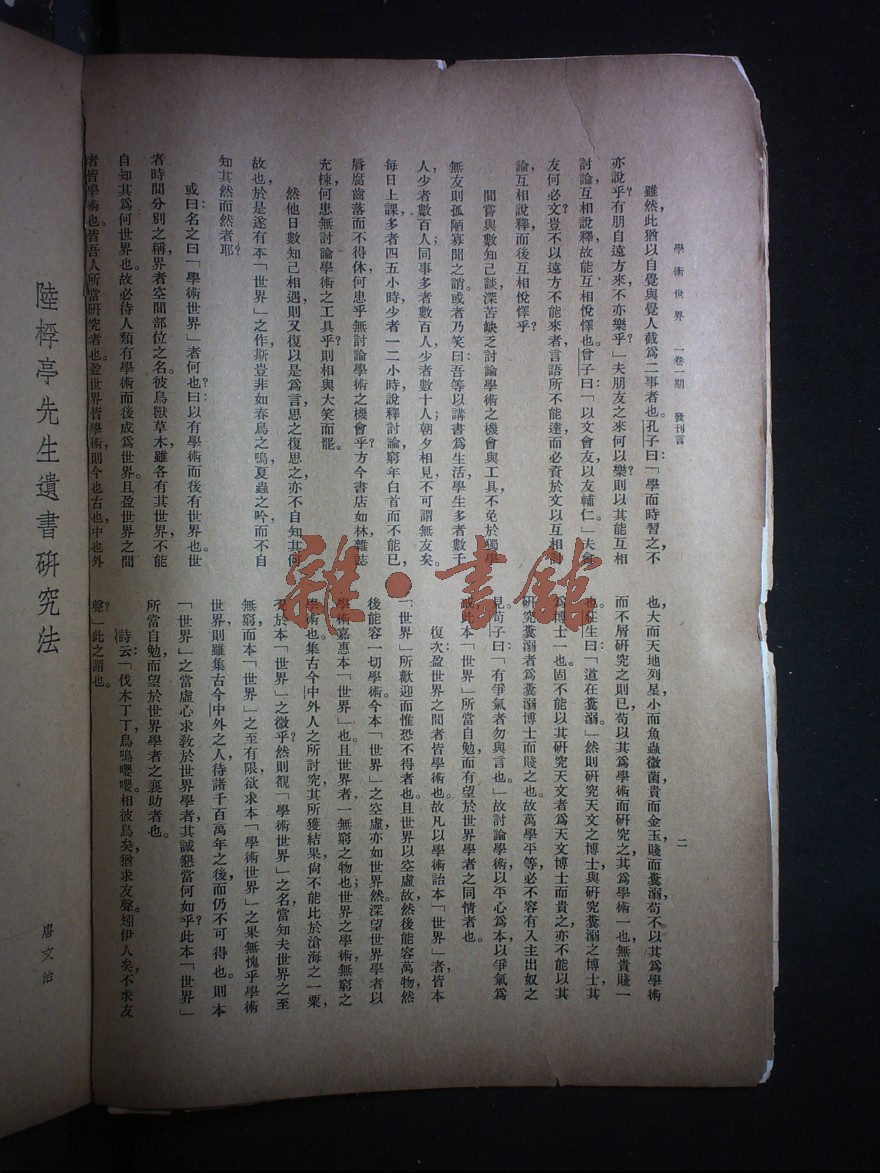 學術世界 一卷一期 發刊言
二
雖然此猶以自覺與覺人截爲二事者也。孔子曰：「學而時習之，不
亦說乎？有朋自遠方來，不亦樂乎？」夫朋友之來何以樂？則以其能互相
討論，互相說釋，故能互相悅懌也。曾子曰：「以文會友，以友輔仁。」夫
友何必文？豈不以遠方不能來者，言語所不能達，而必資於文以互相
論，互相說釋，而後互相悅懌乎？
間嘗與數知己談，深苦缺乏討論學術之機會與工具，不免於獨學
無友，則孤陋寡聞之誚。或者乃笑曰：吾等以講書爲生活，學生多者數千
人，少者數百人；同事多者數百人，少者數十人；朝夕相見，不可謂無友矣。
每日上課，多者四五小時，少者一二小時，說釋討論，窮年白首而不能已，
脣腐齒落而不得休，何患乎無討論學術之機會乎？方今書店如林，雜誌
充棟，何患無討論學術之工具乎？則相與大笑而罷。
然他日數知己相遇，則又復以是爲言，思之復思之，亦不自知其何
故也。於是遂有本「世界」之作，斯豈非如春鳥之鳴，夏蟲之吟，而不自
知其然而然者耶？
或曰：名之曰「學術世界」者何也？曰：以有學術而後有世界也。世
者時間分別之稱，界者空間部位之名。彼鳥獸草木，雖各有其世界，不能
自知其爲何世界也。故必待人類有學術而後成爲世界。且盈世界之間
者皆學術也。皆吾人所當研究者也。盈世界皆學術，則今也古也，中也外
也，大而天地列星，小而魚蟲微菌，貴而金玉，賤而糞溺，苟不以其爲學術
而不屑研究之則已，苟以其爲學術而研究之，其爲學術一也，無貴賤一
也。莊生曰：「道在糞溺。」然則研究天文之博士，與研究糞溺之博士，其
爲博士一也。固不能以其研究天文者爲天文博士而貴之，亦不能以其
研究糞溺者爲糞溺博士而賤之也。故萬學平等，必不容有入主出奴之
見。荀子曰：「有爭氣者勿與言也。」故討論學術，以平心爲本，以爭氣爲
戒。此本「世界」所當自勉而有望於世界學者之同情者也。
復次，盈世界之間者皆學術也。故凡以學術詒本「世界」者，皆本
「世界」所歡迎而惟恐不得者也。且世界以空虛故，然後能容萬物，然
後能容一切學術。今本「世界」之空虛亦如世界然，深望世界學者以
學術嘉惠本「世界」也。且世界者，一無窮之物也；世界之學術，無窮之
學術也。集古今中外人之所討究，其所獲結果，尙不能比於滄海之一粟，
況於本「世界」之微乎？然則觀「學術世界」之名，當知夫世界之至
無窮，而本「世界」之至有限，欲求本「學術世界」之果無愧乎學術
世界，則雖集古今中外之人，待諸千百萬年之後，而仍不可得也。則本
「世界」之當虛心求敎於世界學者，其誠懇當何如乎？此本「世界」
所當自勉而望於世界學者之襄助者也。
詩云：「伐木丁丁，鳥鳴嚶嚶。相彼鳥矣，猶求友聲。矧伊人矣，不求友
聲？」此之謂也。
陸桴亭先生遺書研究法
唐文治
雜·書館